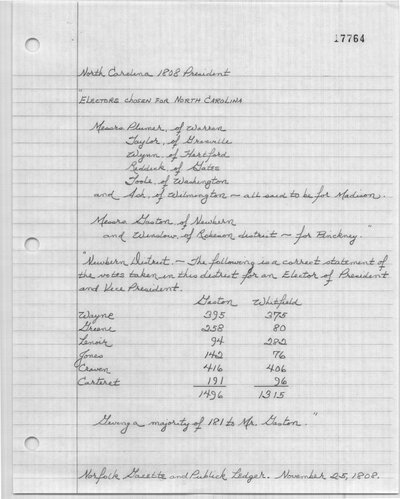 17764
North Carolina 1808 President
"Electors chosen for North Carolina
Messrs Plumer, of Warren
Taylor, of Granville
Wynn, of Hartford
Reddick, of Gates
Toole, of Washington
and Ash, of Wilmington ~ all said to be for Madison.
Messrs Gaston, of Newbern
and Winslow, of Robeson district ~ for Pinckney."
"Newbern District. ~ The following is a correct statement of
the votes taken in this district for an Elector of President
and Vice President.
Gaston Whitfield
Wayne 395 375
Greene 258 80
Lenoir 94 282
Jones 142 76
Craven 416 406
Carteret 191 96
1496 1315
Giving a majority of 181 to Mr. Gaston."
Norfolk Gazette and Publick Ledger. November 25, 1808.